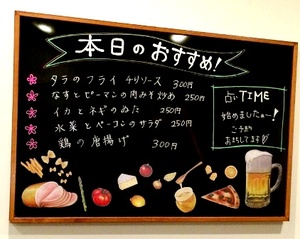 本日のおすすめ!
タラのフライ チリソース 300円
なすとピーマンの肉みそ炒め 250円
イカとネギのぬた 250円
水菜とベーコンのサラダ 250円
鶏の唐揚げ 300円
占いTIME
始めましたぁー!
ご予約
お待ちしてます